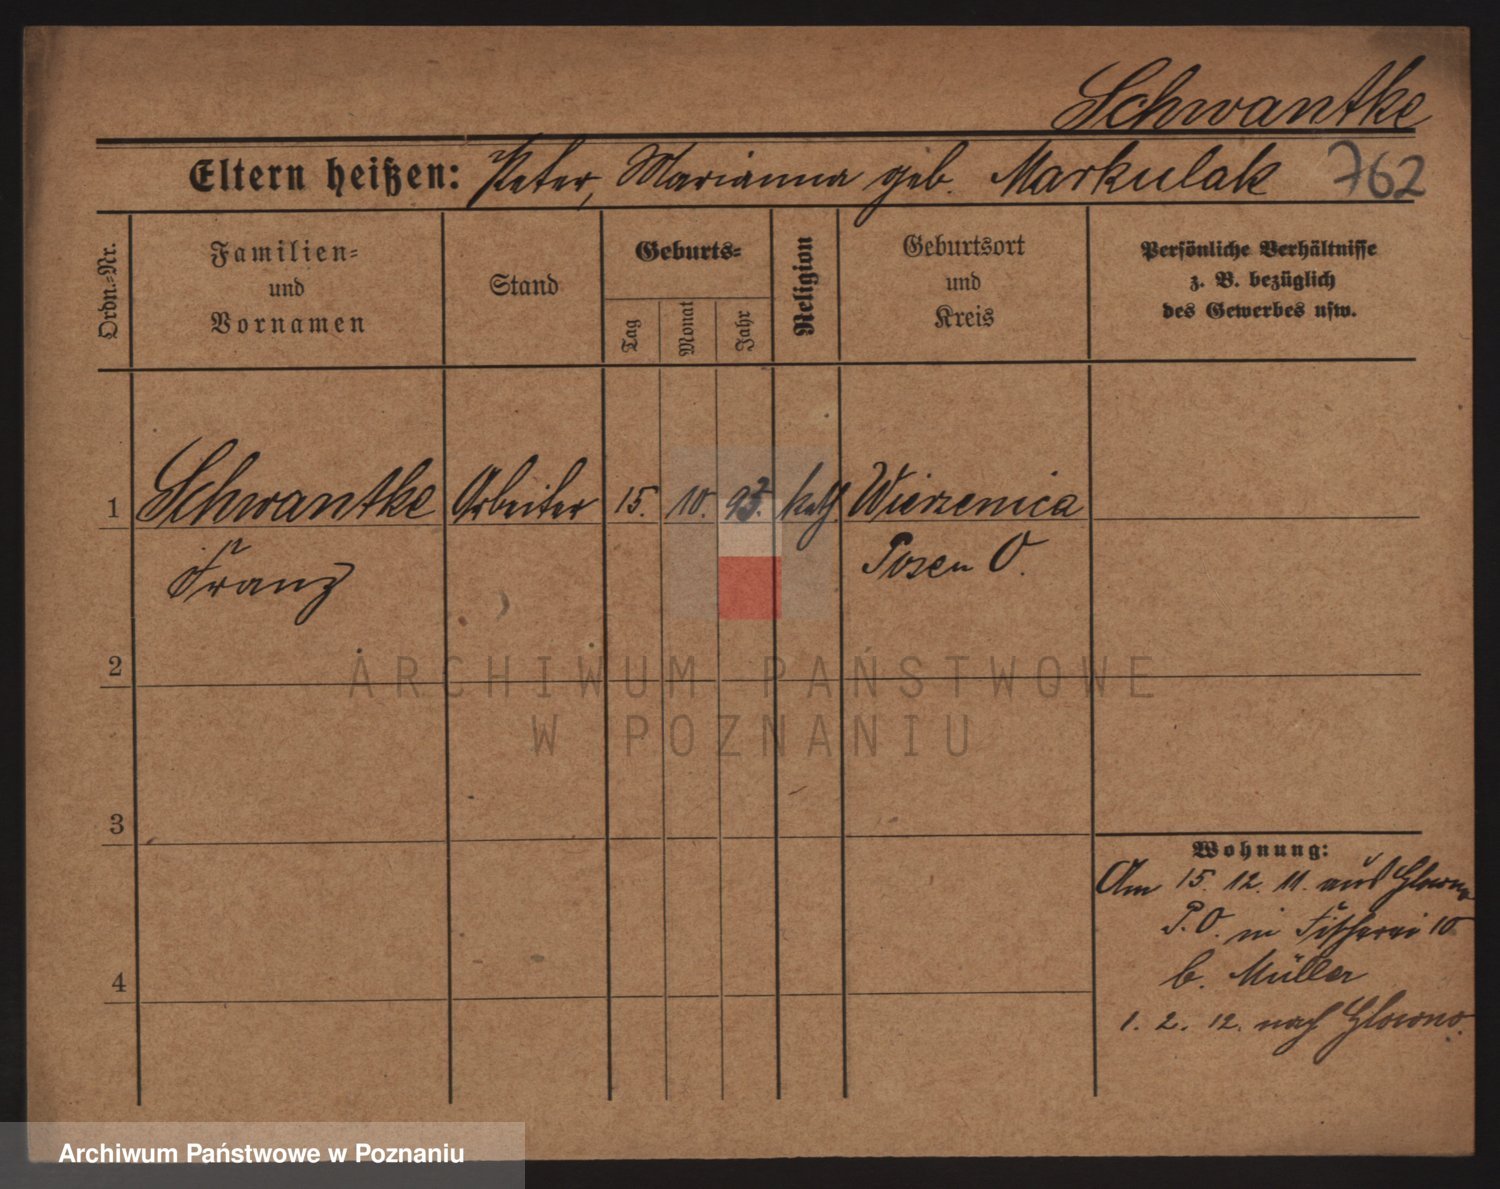 Schwantke
Eltern heißen: Peter, Marianna geb. Markulak 762
Ordn.-Nr.
Familien-
und
Vornamen
Stand
Geburts-
Tag
Monat
Jahr
Religion
Geburtsort
und
Kreis
Persönliche Verhältnisse
z. B. bezüglich
des Gewerbes usw.
1 Schwantke Arbeiter 15. 10. 93. kath. Wierzenica
Franz Posen O.
2
ARCHIWUM PAŃSTWOWE
W POZNANIU
3
Wohnung:
Am 15. 12. 11. aus Glowno
P. O. in Fischerei 10
b. Müller
4
1. 2. 12. nach Glowno.
Archiwum Państwowe w Poznaniu